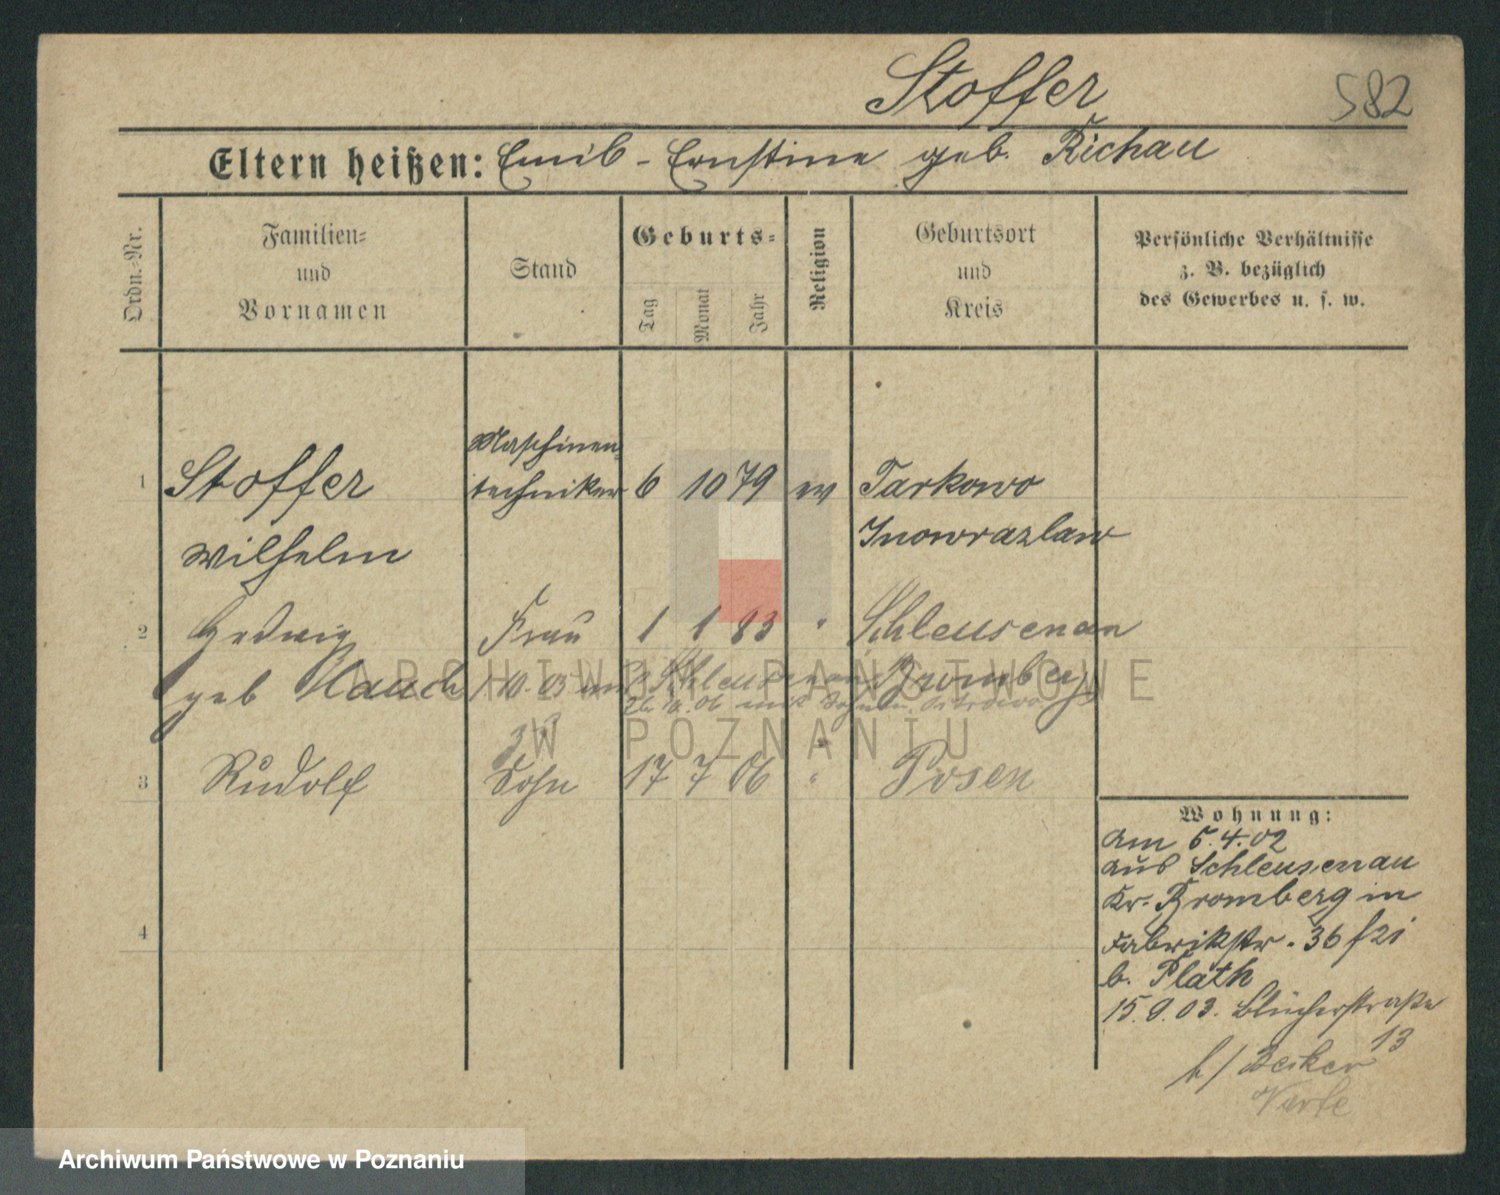 Stoffer
582
Eltern heißen: Emil - Ernstine geb. Richau
Ordn.-Nr.
Familien-
und
Vornamen
Stand
Geburts-
Tag
Monat
Jahr
Religion
Geburtsort
und
Kreis
Persönliche Verhältnisse
z. B. bezüglich
des Gewerbes u. s. w.
Maschinen
1 Stoffer techniker 6 10 79 ev Tarkowo
Wilhelm Inowrazlaw
2 Hedwig Frau 1 1 83 " Schleusenau
geb Haack 1.10.03 aus Schleusenau Bromberg
26.10.06 mit Sohn
3 Rudolf Sohn 17 7 06 " Posen
4
Wohnung:
am 5.4.02
aus Schleusenau
Kr. Bromberg in
Fabrikstr. 36
b. Plath
15.9.03. Blücherstraße
13
b/ Becker
ARCHIWUM PAŃSTWOWE
W POZNANIU
Archiwum Państwowe w Poznaniu